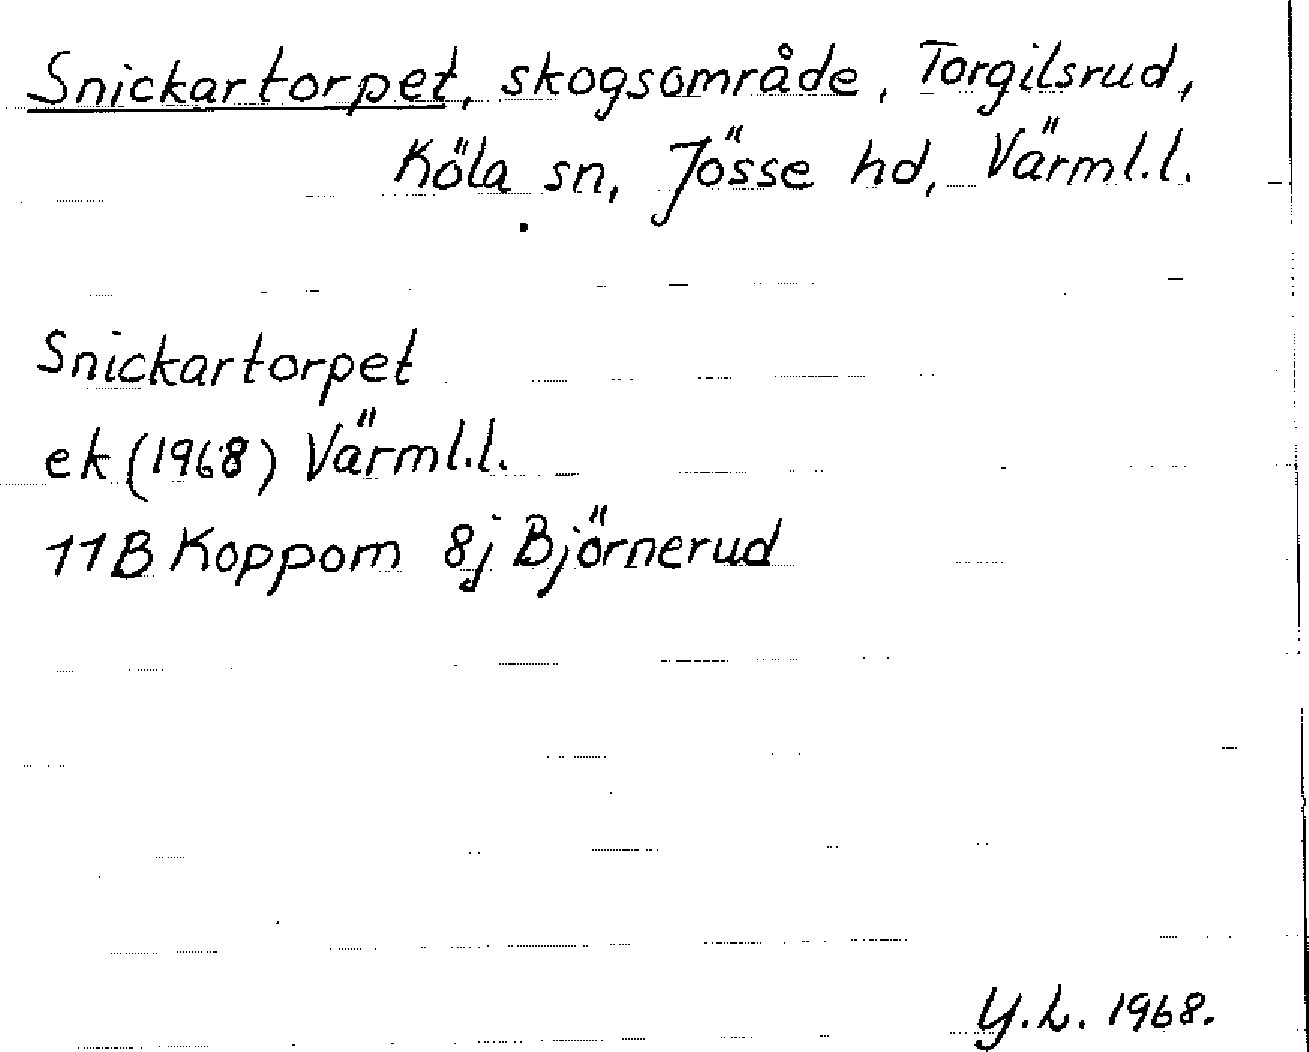 Snickartorpet, skogsområde, Torgilsrud,
Köla sn, Jösse hd, Värml.l.
Snickartorpet
ek (1968) Värml.l.
11B Koppom 8j Björnerud
Y.L. 1968.